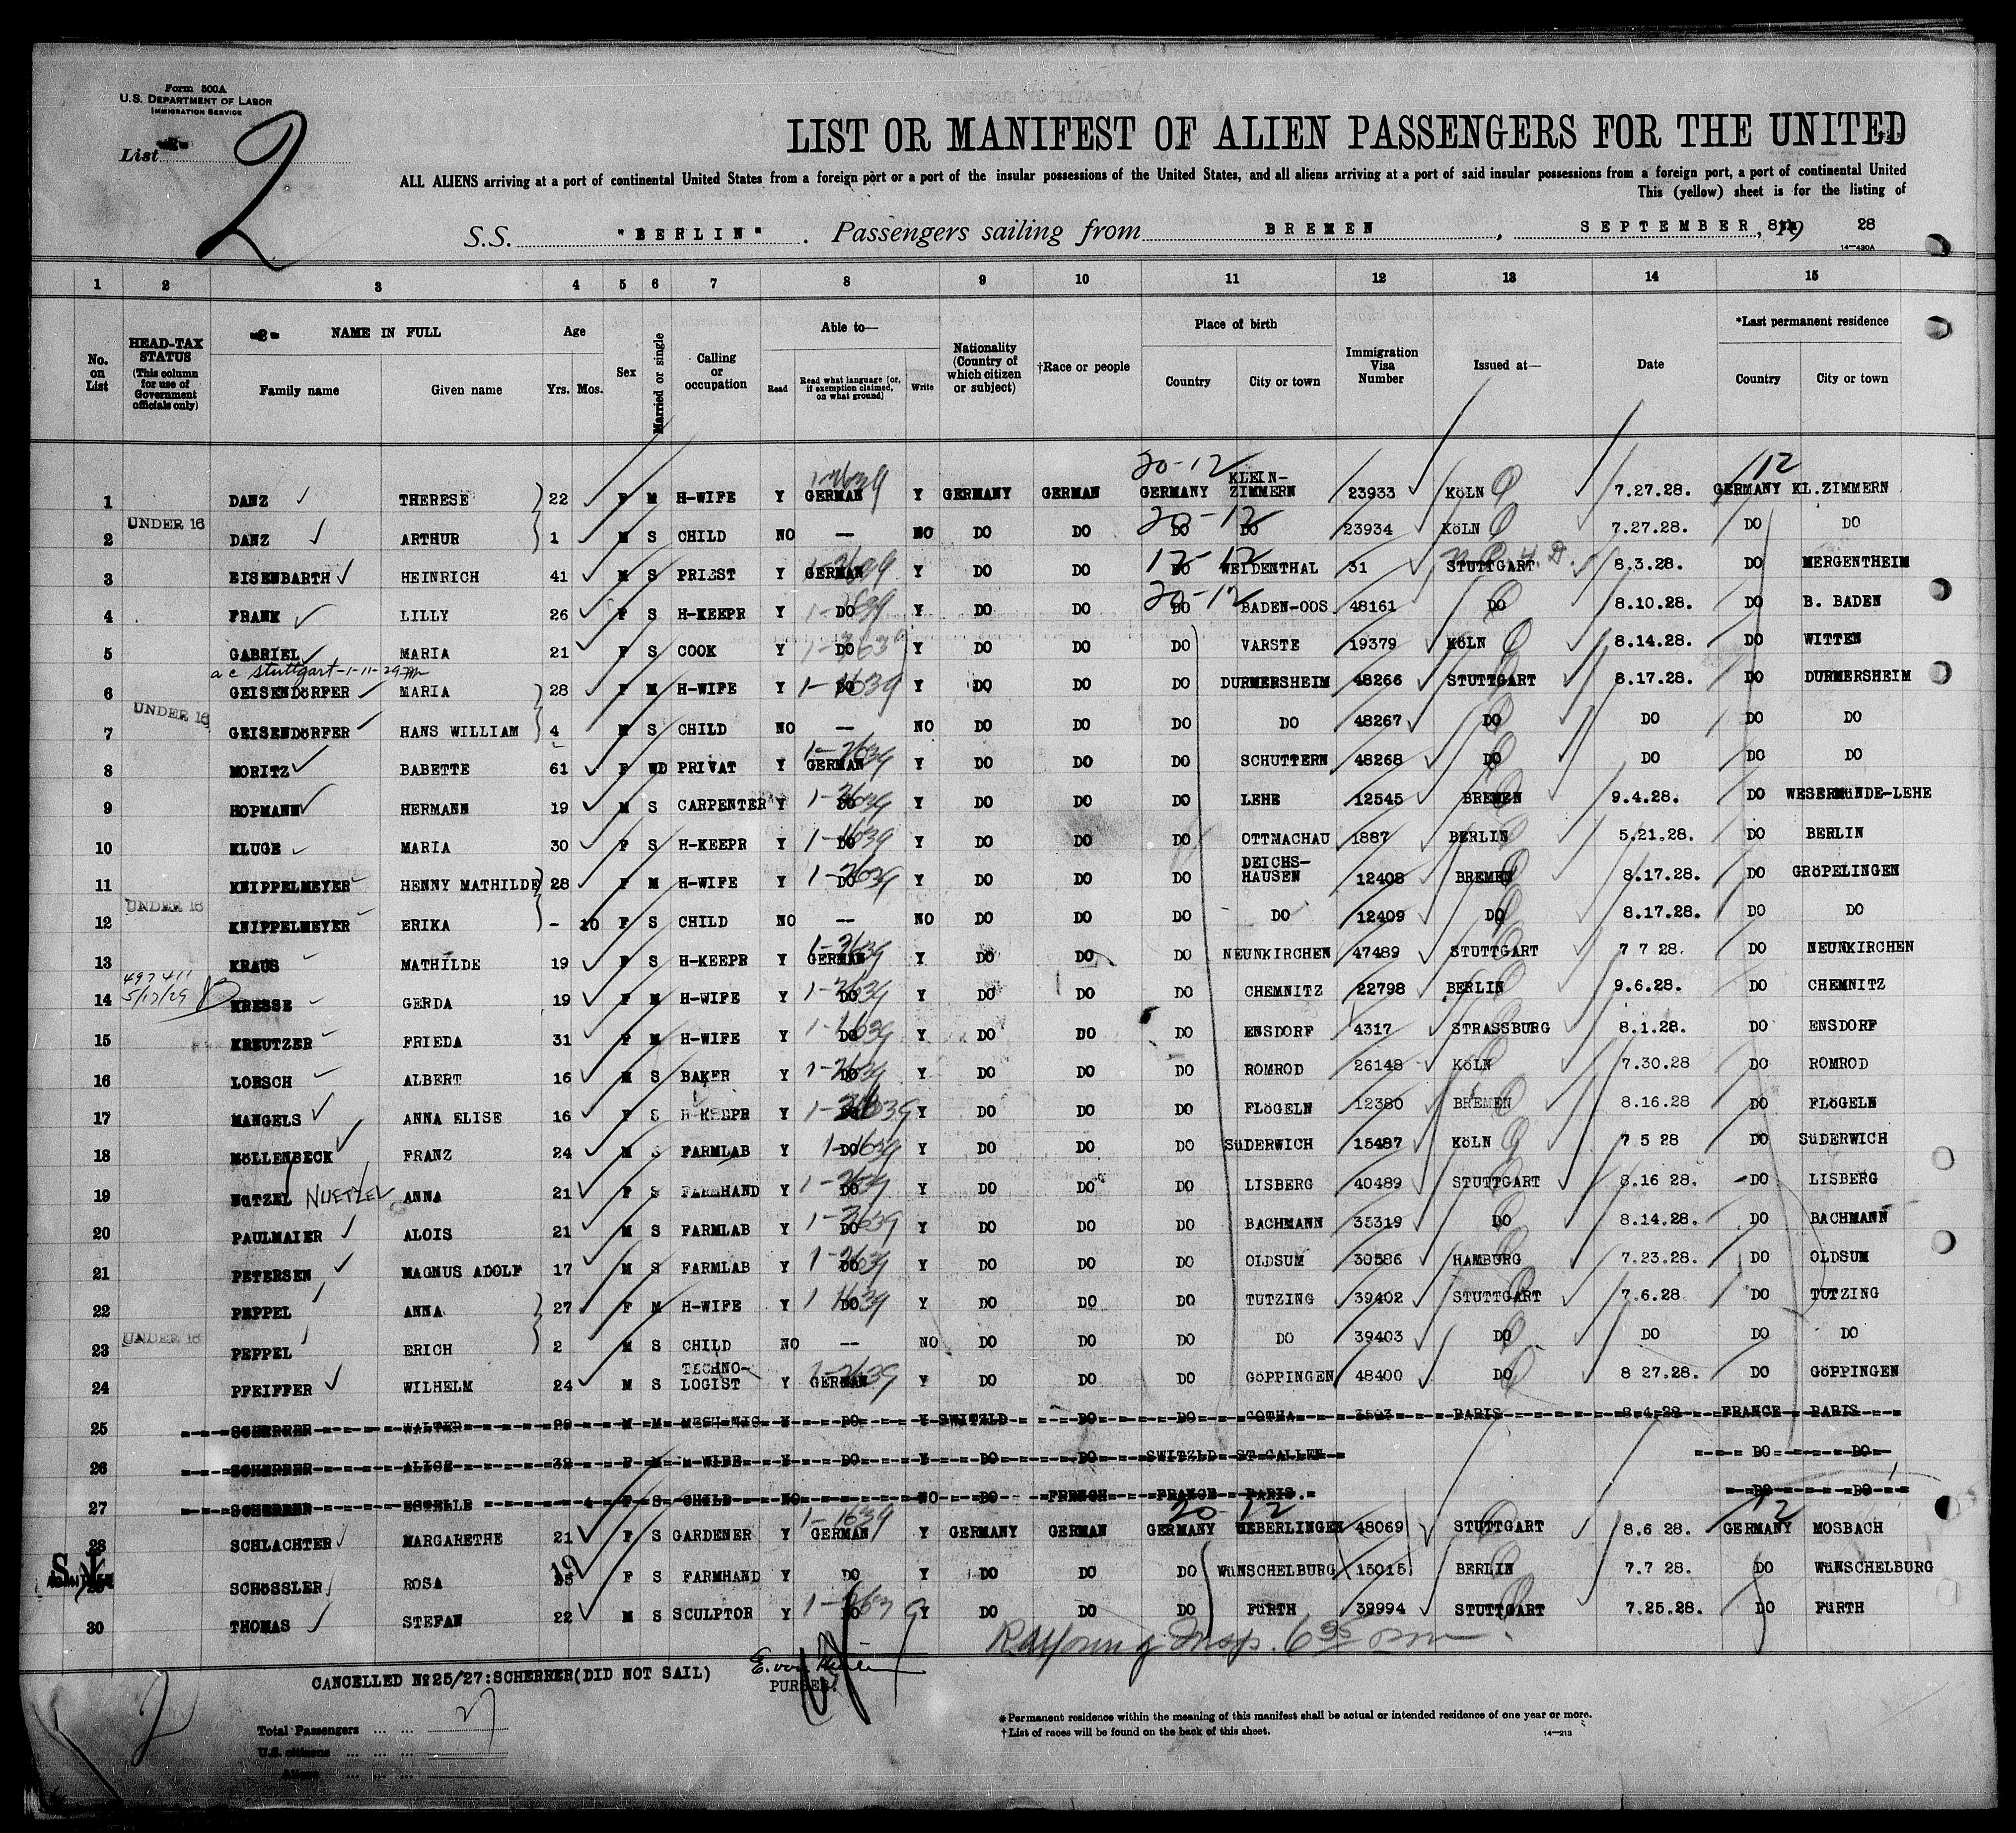 Form 500A
U.S. DEPARTMENT OF LABOR
IMMIGRATION SERVICE
List
2
LIST OR MANIFEST OF ALIEN PASSENGERS FOR THE UNITED
ALL ALIENS arriving at a port of continental United States from a foreign port or a port of the insular possessions of the United States, and all aliens arriving at a port of said insular possessions from a foreign port, a port of continental United
This (yellow) sheet is for the listing of
S.S. "BERLIN" . Passengers sailing from BREMEN , SEPTEMBER, 8th 19 28
14—430A
1 2 3 4 5 6 7 8 9 10 11 12 13 14 15
No. on List
HEAD-TAX STATUS (This column for use of Government officials only)
NAME IN FULL
Family name Given name
Age
Yrs. Mos.
Sex
Married or single
Calling or occupation
Able to—
Read Read what language (or, if exemption claimed, on what ground) Write
Nationality (Country of which citizen or subject)
†Race or people
Place of birth
Country City or town
Immigration Visa Number
Issued at—
Date
*Last permanent residence
Country City or town
20-12 12
1 DANZ THERESE 22 F M H-WIFE Y GERMAN Y GERMANY GERMAN GERMANY KLEIN-ZIMMERN 23933 KöLN 7.27.28. GERMANY KL.ZIMMERN
UNDER 16 20-12
2 DANZ ARTHUR 1 M S CHILD NO — NO DO DO DO DO 23934 KöLN 7.27.28. DO DO
12-12
3 EISENBARTH HEINRICH 41 M S PRIEST Y GERMAN Y DO DO DO WEIDENTHAL 31 STUTTGART 8.3.28. DO MERGENTHEIM
20-12
4 FRANK LILLY 26 F S H-KEEPR Y DO Y DO DO DO BADEN-OOS 48161 DO 8.10.28. DO B. BADEN
5 GABRIEL MARIA 21 F S COOK Y DO Y DO DO DO VARSTE 19379 KöLN 8.14.28. DO WITTEN
a c Stuttgart-1-11-29
6 GEISENDöRFER MARIA 28 F M H-WIFE Y DO Y DO DO DO DURMERSHEIM 48266 STUTTGART 8.17.28. DO DURMERSHEIM
UNDER 16
7 GEISENDöRFER HANS WILLIAM 4 M S CHILD NO — NO DO DO DO DO 48267 DO DO DO DO
8 MORITZ BABETTE 61 F WD PRIVAT Y GERMAN Y DO DO DO SCHUTTERN 48268 DO DO DO DO
9 HOPMANN HERMANN 19 M S CARPENTER Y DO Y DO DO DO LEHE 12545 BREMEN 9.4.28. DO WESERMüNDE-LEHE
10 KLUGE MARIA 30 F S H-KEEPR Y DO Y DO DO DO OTTMACHAU 1887 BERLIN 5.21.28. DO BERLIN
11 KNIPPELMEYER HENNY MATHILDE 28 F M H-WIFE Y DO Y DO DO DO DEICHS-HAUSEN 12408 BREMEN 8.17.28. DO GRöPELINGEN
UNDER 16
12 KNIPPELMEYER ERIKA - 10 F S CHILD NO — NO DO DO DO DO 12409 DO 8.17.28. DO DO
13 KRAUS MATHILDE 19 F S H-KEEPR Y GERMAN Y DO DO DO NEUNKIRCHEN 47489 STUTTGART 7 7 28. DO NEUNKIRCHEN
497411
5/17/29
14 KRESSE GERDA 19 F M H-WIFE Y DO Y DO DO DO CHEMNITZ 22798 BERLIN 9.6.28. DO CHEMNITZ
15 KREUTZER FRIEDA 31 F M H-WIFE Y DO Y DO DO DO ENSDORF 4317 STRASSBURG 8.1.28. DO ENSDORF
16 LORSCH ALBERT 16 M S BAKER Y DO Y DO DO DO ROMROD 26148 KöLN 7.30.28 DO ROMROD
17 MANGELS ANNA ELISE 16 F S H-KEEPR Y DO Y DO DO DO FLöGELN 12380 BREMEN 8.16.28 DO FLöGELN
18 MöLLENBECK FRANZ 24 M S FARMLAB Y DO Y DO DO DO SüDERWICH 15487 KöLN 7 5 28 DO SüDERWICH
19 NüTZEL NUETZEL ANNA 21 F S FARMHAND Y DO Y DO DO DO LISBERG 40489 STUTTGART 8.16 28. DO LISBERG
20 PAULMAIER ALOIS 21 M S FARMLAB Y DO Y DO DO DO BACHMANN 35319 DO 8.14.28. DO BACHMANN
21 PETERSEN MAGNUS ADOLF 17 M S FARMLAB Y DO Y DO DO DO OLDSUM 30586 HAMBURG 7.23.28. DO OLDSUM
22 PEPPEL ANNA 27 F M H-WIFE Y DO Y DO DO DO TUTZING 39402 STUTTGART 7.6.28 DO TUTZING
UNDER 16
23 PEPPEL ERICH 2 M S CHILD NO — NO DO DO DO DO 39403 DO DO DO DO
24 PFEIFFER WILHELM 24 M S TECHNO-LOGIST Y GERMAN Y DO DO DO GöPPINGEN 48400 DO 8 27.28. DO GöPPINGEN
25 SCHERRER WALTER M M Y DO Y SWITZLD DO DO GOTHA PARIS 8.4.28 FRANCE PARIS
26 SCHERRER ALICE 32 F M H-WIFE Y DO Y DO DO SWITZLD ST GALLEN DO DO
27 SCHERRER ESTELLE 4 F S CHILD NO NO DO FRENCH FRANCE PARIS. DO DO
20 12 12
28 SCHLACHTER MARGARETHE 21 F S GARDENER Y GERMAN Y GERMANY GERMAN GERMANY UEBERLINGEN 48069 STUTTGART 8.6 28. GERMANY MOSBACH
29 SCHöSSLER ROSA 19 F S FARMHAND Y DO Y DO DO DO WüNSCHELBURG 15015 BERLIN 7.7 28. DO WüNSCHELBURG
30 THOMAS STEFAN 22 M S SCULPTOR Y DO Y DO DO DO FüRTH 39994 STUTTGART 7.25.28. DO FüRTH
CANCELLED No 25/27:SCHERRER(DID NOT SAIL)
PURSER.
Total Passengers ... ... 27
U.S. citizens ... ... ...
Aliens ... ... ...
*Permanent residence within the meaning of this manifest shall be actual or intended residence of one year or more.
†List of races will be found on the back of this sheet.
14—213